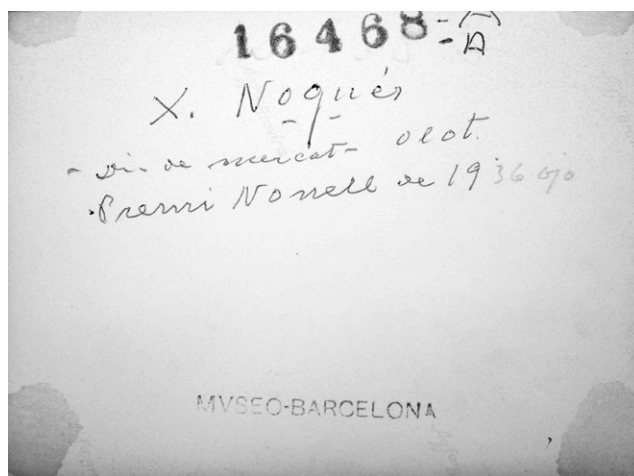 16468=A
X. Nogués
- Dia de mercat - olot.
Premi Nonell de 1936 ojo
MVSEO-BARCELONA